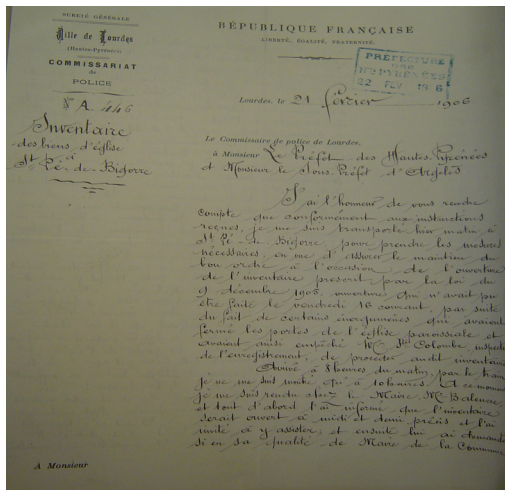 SURETÉ GÉNÉRALE
Ville de Lourdes
(Hautes-Pyrénées)
COMMISSARIAT
DE
POLICE
N° A. 446
Inventaire
des biens d'église
à
St Pé-de-Bigorre
À Monsieur
RÉPUBLIQUE FRANÇAISE
LIBERTÉ, ÉGALITÉ, FRATERNITÉ.
PRÉFECTURE
DES
HTES PYRÉNÉES
22 FEV 1906
Lourdes, le 21 février 1906
Le Commissaire de police de Lourdes,
à Monsieur Le Préfet des Hautes-Pyrénées
et Monsieur le Sous-Préfet d'Argelès
J'ai l'honneur de vous rendre
compte que conformément aux instructions
reçues, je me suis transporté hier matin à
St Pé-de-Bigorre, pour prendre les mesures
nécessaires, en vue d'assurer le maintien du
bon ordre à l'occasion de l'ouverture
de l'inventaire prescrit par la loi du
9 décembre 1905, ouverture qui n'avait pu
être faite le vendredi 16 courant, par suite
du fait de certains énergumènes qui avaient
fermé les portes de l'église paroissiale et
avaient ainsi empêché Mr Colombe, inspect
de l'enregistrement, de procéder audit inventaire
Arrivé à 8 heures du matin, par le train
je ne me suis qu'à 10 heures. A ce moment
je me suis rendu chez le Maire, Mr
et tout d'abord l'ai informé que l'inventaire
serait ouvert à midi et demi précis et l'ai
invité à y assister, et ensuite lui ai demandé
si en sa qualité de Maire de la Commune